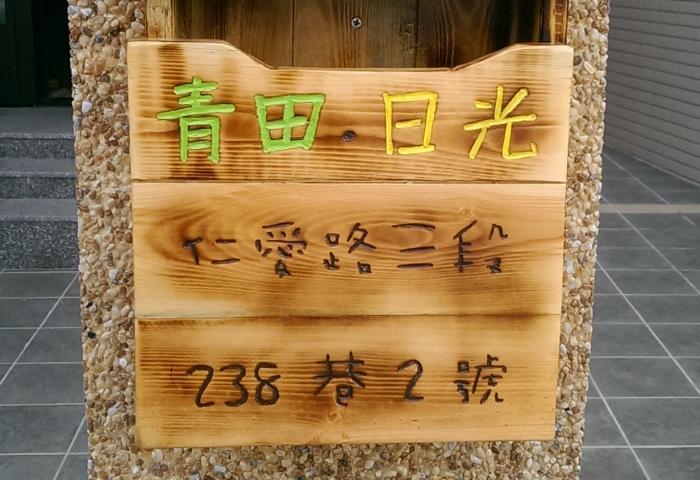 青田 日光
仁愛路三段
238 巷 2 號